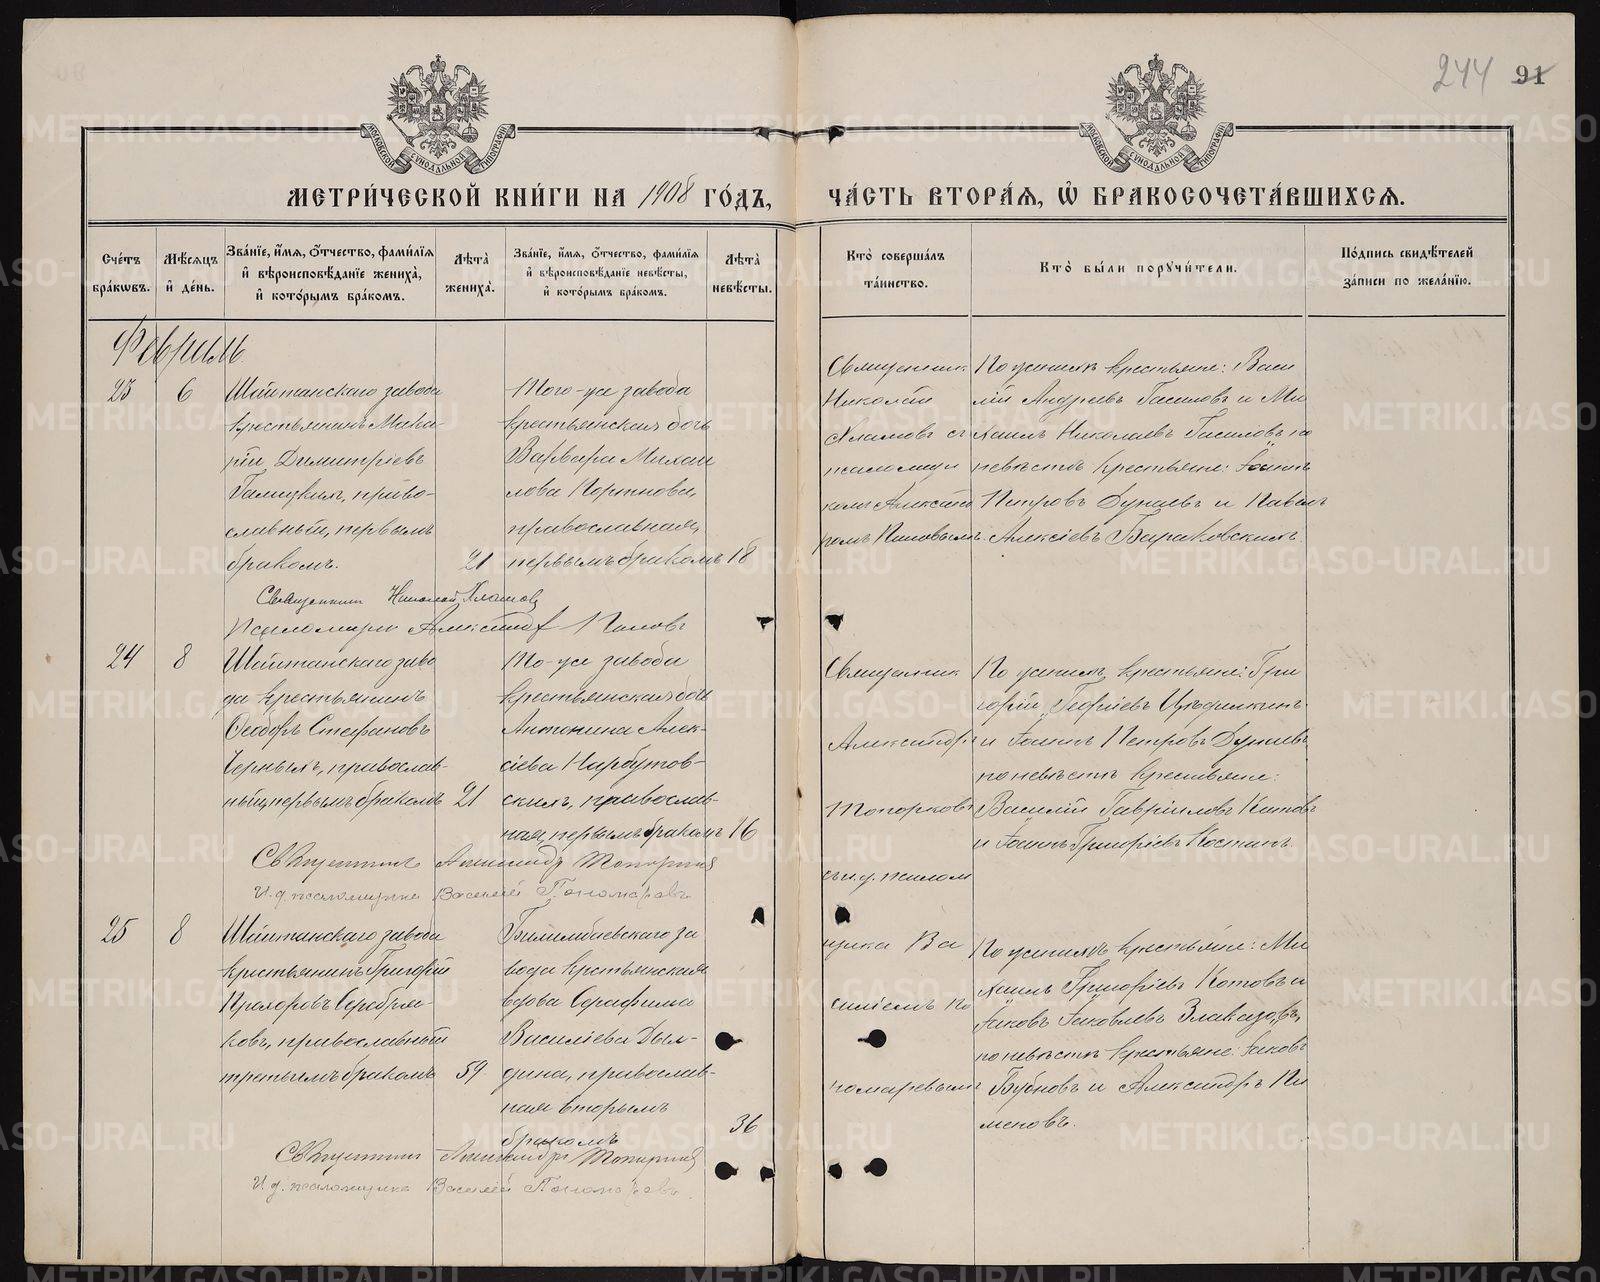 244 91
МОСКОВСКОЙ СѴНОДАЛЬНОЙ ТИПОГРАФІИ
МОСКОВСКОЙ СѴНОДАЛЬНОЙ ТИПОГРАФІИ
МЕТРИ́ЧЕСКОЙ КНИ́ГИ НА 1908 ГО́ДЪ,
ЧА́СТЬ ВТОРА́Ѧ, Ѽ БРАКОСОЧЕТА́ВШИХСѦ.
Сче́тъ бра́кѡвъ.
Мѣ́сѧцъ и҆ де́нь.
Зва́нїе, и҆́мѧ, ѻ҆́тчество, фами́лїѧ и҆ вѣроисповѣ́данїе жениха̀, и҆ кото́рымъ бра́комъ.
Лѣ́та жениха̀.
Зва́нїе, и҆́мѧ, ѻ҆́тчество, фами́лїѧ и҆ вѣроисповѣ́данїе невѣ́сты, и҆ кото́рымъ бра́комъ.
Лѣ́та невѣ́сты.
Кто̀ соверша́лъ та́инство.
Кто̀ бы́ли порꙋчи́тели.
По́дпись свидѣ́телей за́писи по жела́нїю.
Февраль
23 6
Шайтанскаго завода
крестьянинъ Мака-
рій Димитріевъ
Галицкихъ, право-
славный, первымъ
бракомъ.
21
Того-же завода
крестьянская дочь
Варвара Михаи
лова Портнова,
православная,
первымъ бракомъ
18
Священникъ
Николай
Хламовъ съ
псаломщи
комъ Алексан
ромъ Поповымъ.
По женихѣ крестьяне: Васи
лій Андреевъ Гасиловъ и Ми
хаилъ Николаевъ Гасиловъ по
невѣстѣ крестьяне: Іоаннъ
Петровъ Дунаевъ и Павелъ
Алексіевъ Бараковскихъ.
Священникъ Николай Хламовъ
Псаломщикъ Александръ Поповъ
24 8
Шайтанскаго заво
да крестьянинъ
Ѳеодоръ Стефановъ
Черныхъ, православ-
ный, первымъ бракомъ
21
То-же завода
крестьянская дочь
Антонина Алек-
сіева Нарбутов-
скихъ, православ-
ная, первымъ бракомъ
16
Священникъ
Александръ
Топорковъ
съ и.д. псалом
щика Ва
силіемъ По
номаревымъ
По женихѣ крестьяне: Гри
горій Георгіевъ
и Іоаннъ Петровъ Дунаевъ,
по невѣстѣ крестьяне:
Василій Гавріиловъ Котовъ
и Іоаннъ Григорьевъ Костинъ.
Священникъ Александръ Топорковъ
И. д. псаломщика Василій Пономаревъ
25 8
Шайтанскаго завода
крестьянинъ Григорій
Прохоровъ Серебря-
ковъ, православный
третьимъ бракомъ
59
Билимбаевскаго за
вода крестьянская
вдова Серафима
Василіева Дыл-
дина, православ-
ная вторымъ
бракомъ
36
По женихѣ крестьяне: Ми
хаилъ Григорьевъ Котовъ и
Іаковъ Іаковлевъ
по невѣстѣ крестьяне: Іаковъ
Бубновъ и Александръ Пи
меновъ.
Священникъ Александръ Топорковъ
И. д. псаломщика Василій Пономаревъ.
METRIKI.GASO-URAL.RU